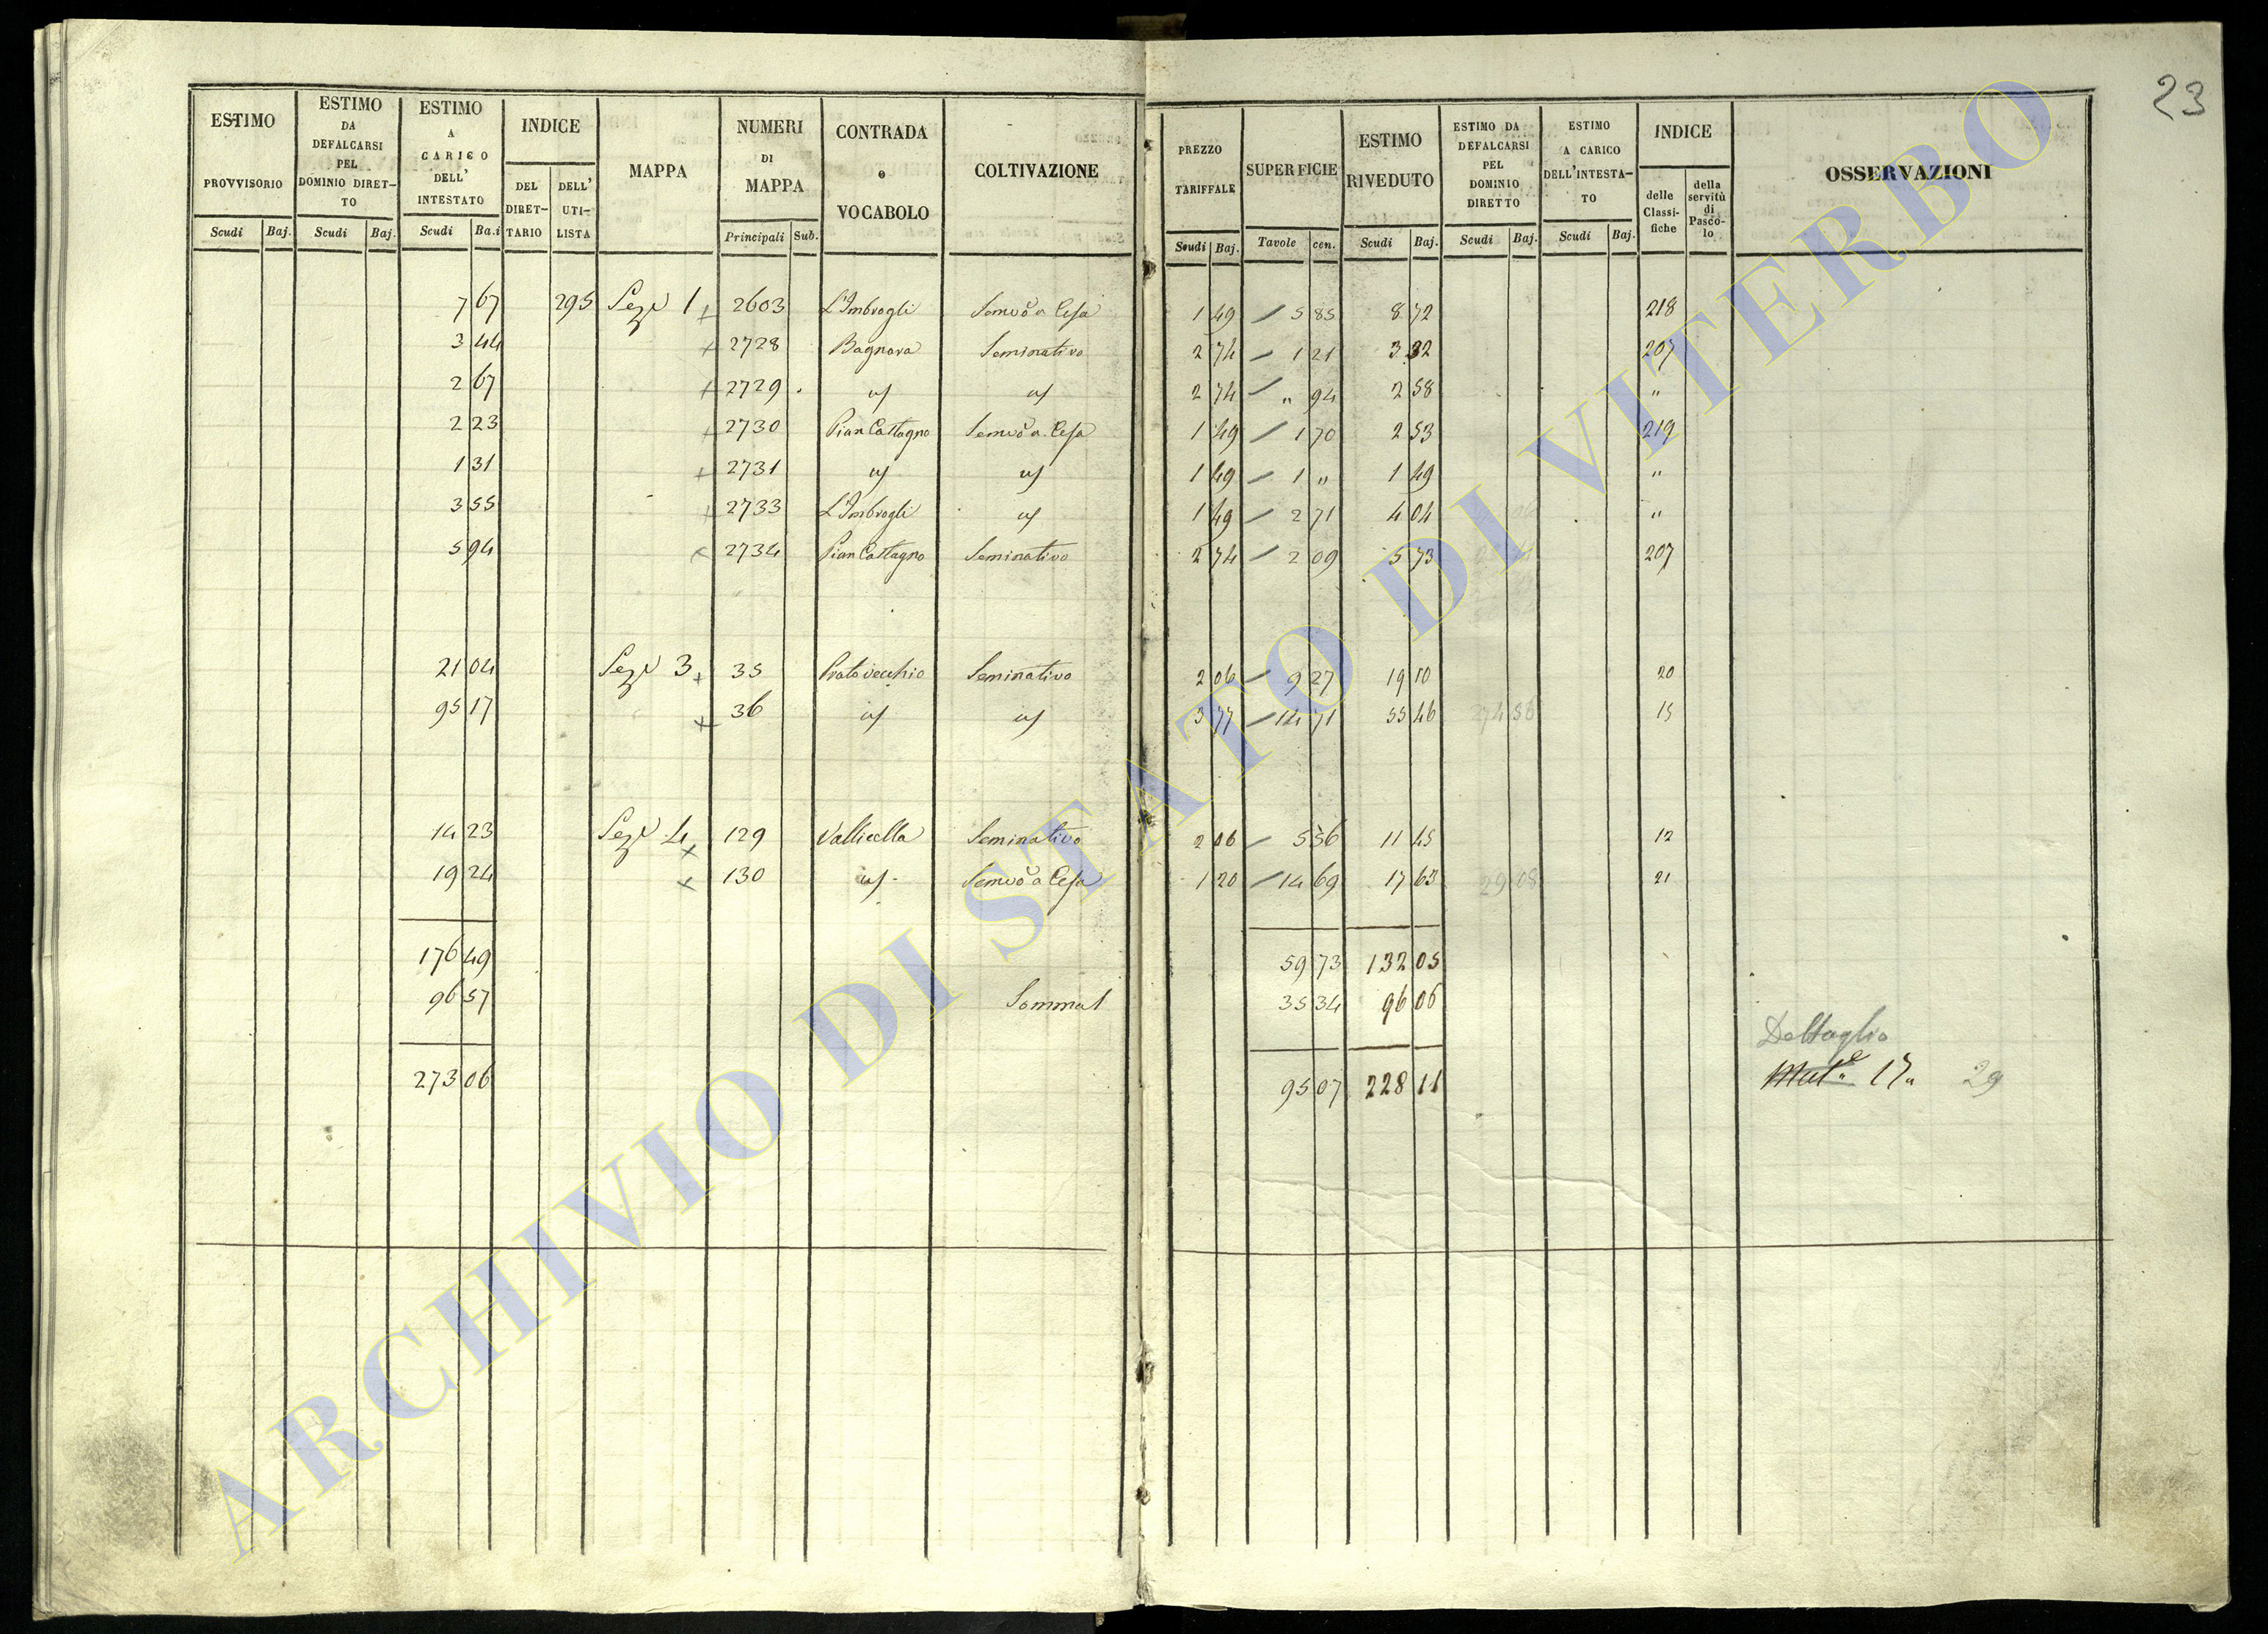 23
ESTIMO PROVVISORIO
ESTIMO DA DEFALCARSI PEL DOMINIO DIRET-TO
ESTIMO A CARICO DELL' INTESTATO
INDICE
DEL DIRET-TARIO
DELL' UTI-LISTA
MAPPA
NUMERI DI MAPPA
CONTRADA e VOCABOLO
COLTIVAZIONE
PREZZO TARIFFALE
SUPERFICIE
ESTIMO RIVEDUTO
ESTIMO DA DEFALCARSI PEL DOMINIO DIRETTO
ESTIMO A CARICO DELL'INTESTA-TO
INDICE
delle Classi-fiche
della servitù di Pasco-lo
OSSERVAZIONI
Scudi Baj. Scudi Baj. Scudi Ba.i Principali Sub. Scudi Baj. Tavole cen. Scudi Baj. Scudi Baj. Scudi Baj.
7 67 295 Seze 1 2603 L'Imbrogli Semvo a Cesa 1 49 5 85 8 72 218
3 44 2728 Bagnara Seminativo 2 74 1 21 3 32 207
2 67 2729 " " 2 74 " 94 2 58 "
2 23 2730 Pian Castagno Semvo a Cesa 1 49 1 70 2 53 219
1 31 2731 " " 1 49 1 " 1 49 "
3 55 2733 L'Imbrogli " 1 49 2 71 4 04 "
5 94 2734 Pian Castagno Seminativo 2 74 2 09 5 73 207
21 04 Sezе 3 35 Prato Vecchio Seminativo 2 06 9 27 19 10 20
95 17 36 " " 3 77 14 71 55 46 274 56 15
14 23 Seze 4 129 Vallicella Seminativo 2 06 5 56 11 45 12
19 24 130 " Semvo a Cesa 1 20 14 69 17 63 29 08 21
176 49 59 73 132 05
96 57 Sommal 35 34 96 06
273 06 95 07 228 11
Dettaglio
Mat.e 17. 29
ARCHIVIO DI STATO DI VITERBO